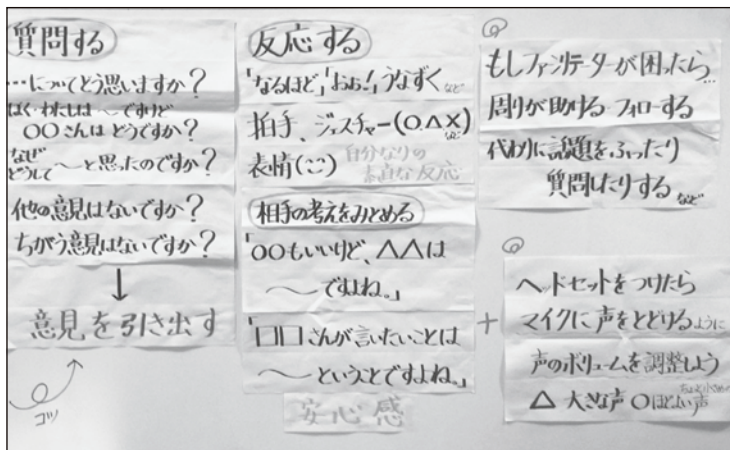 質問する
…についてどう思いますか?
ぼく・わたしは〜ですけど
○○さんはどうですか?
なぜ
どうして〜と思ったのですか?
他の意見はないですか?
ちがう意見はないですか?
↓
意見を引き出す
コツ
反応する
「なるほど」「おお!」うなずくなど
拍手、ジェスチャー(○△×)など
表情(ご)自分なりの
素直な反応
相手の考えをみとめる
「○○もいいけど、△△は
〜ですよね。」
「□□さんが言いたいことは
〜ということですよね。」
安心感
もしファシリテーターが困ったら…
周りが助ける フォローする
代わりに話題をふったり
質問したりする など
+
ヘッドセットをつけたら
マイクに声をとどけるように
声のボリュームを調整しよう
△ 大きな声 ○ほどよい声